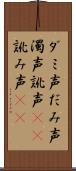 ダミ声だみ声
濁声訛声
訛み声